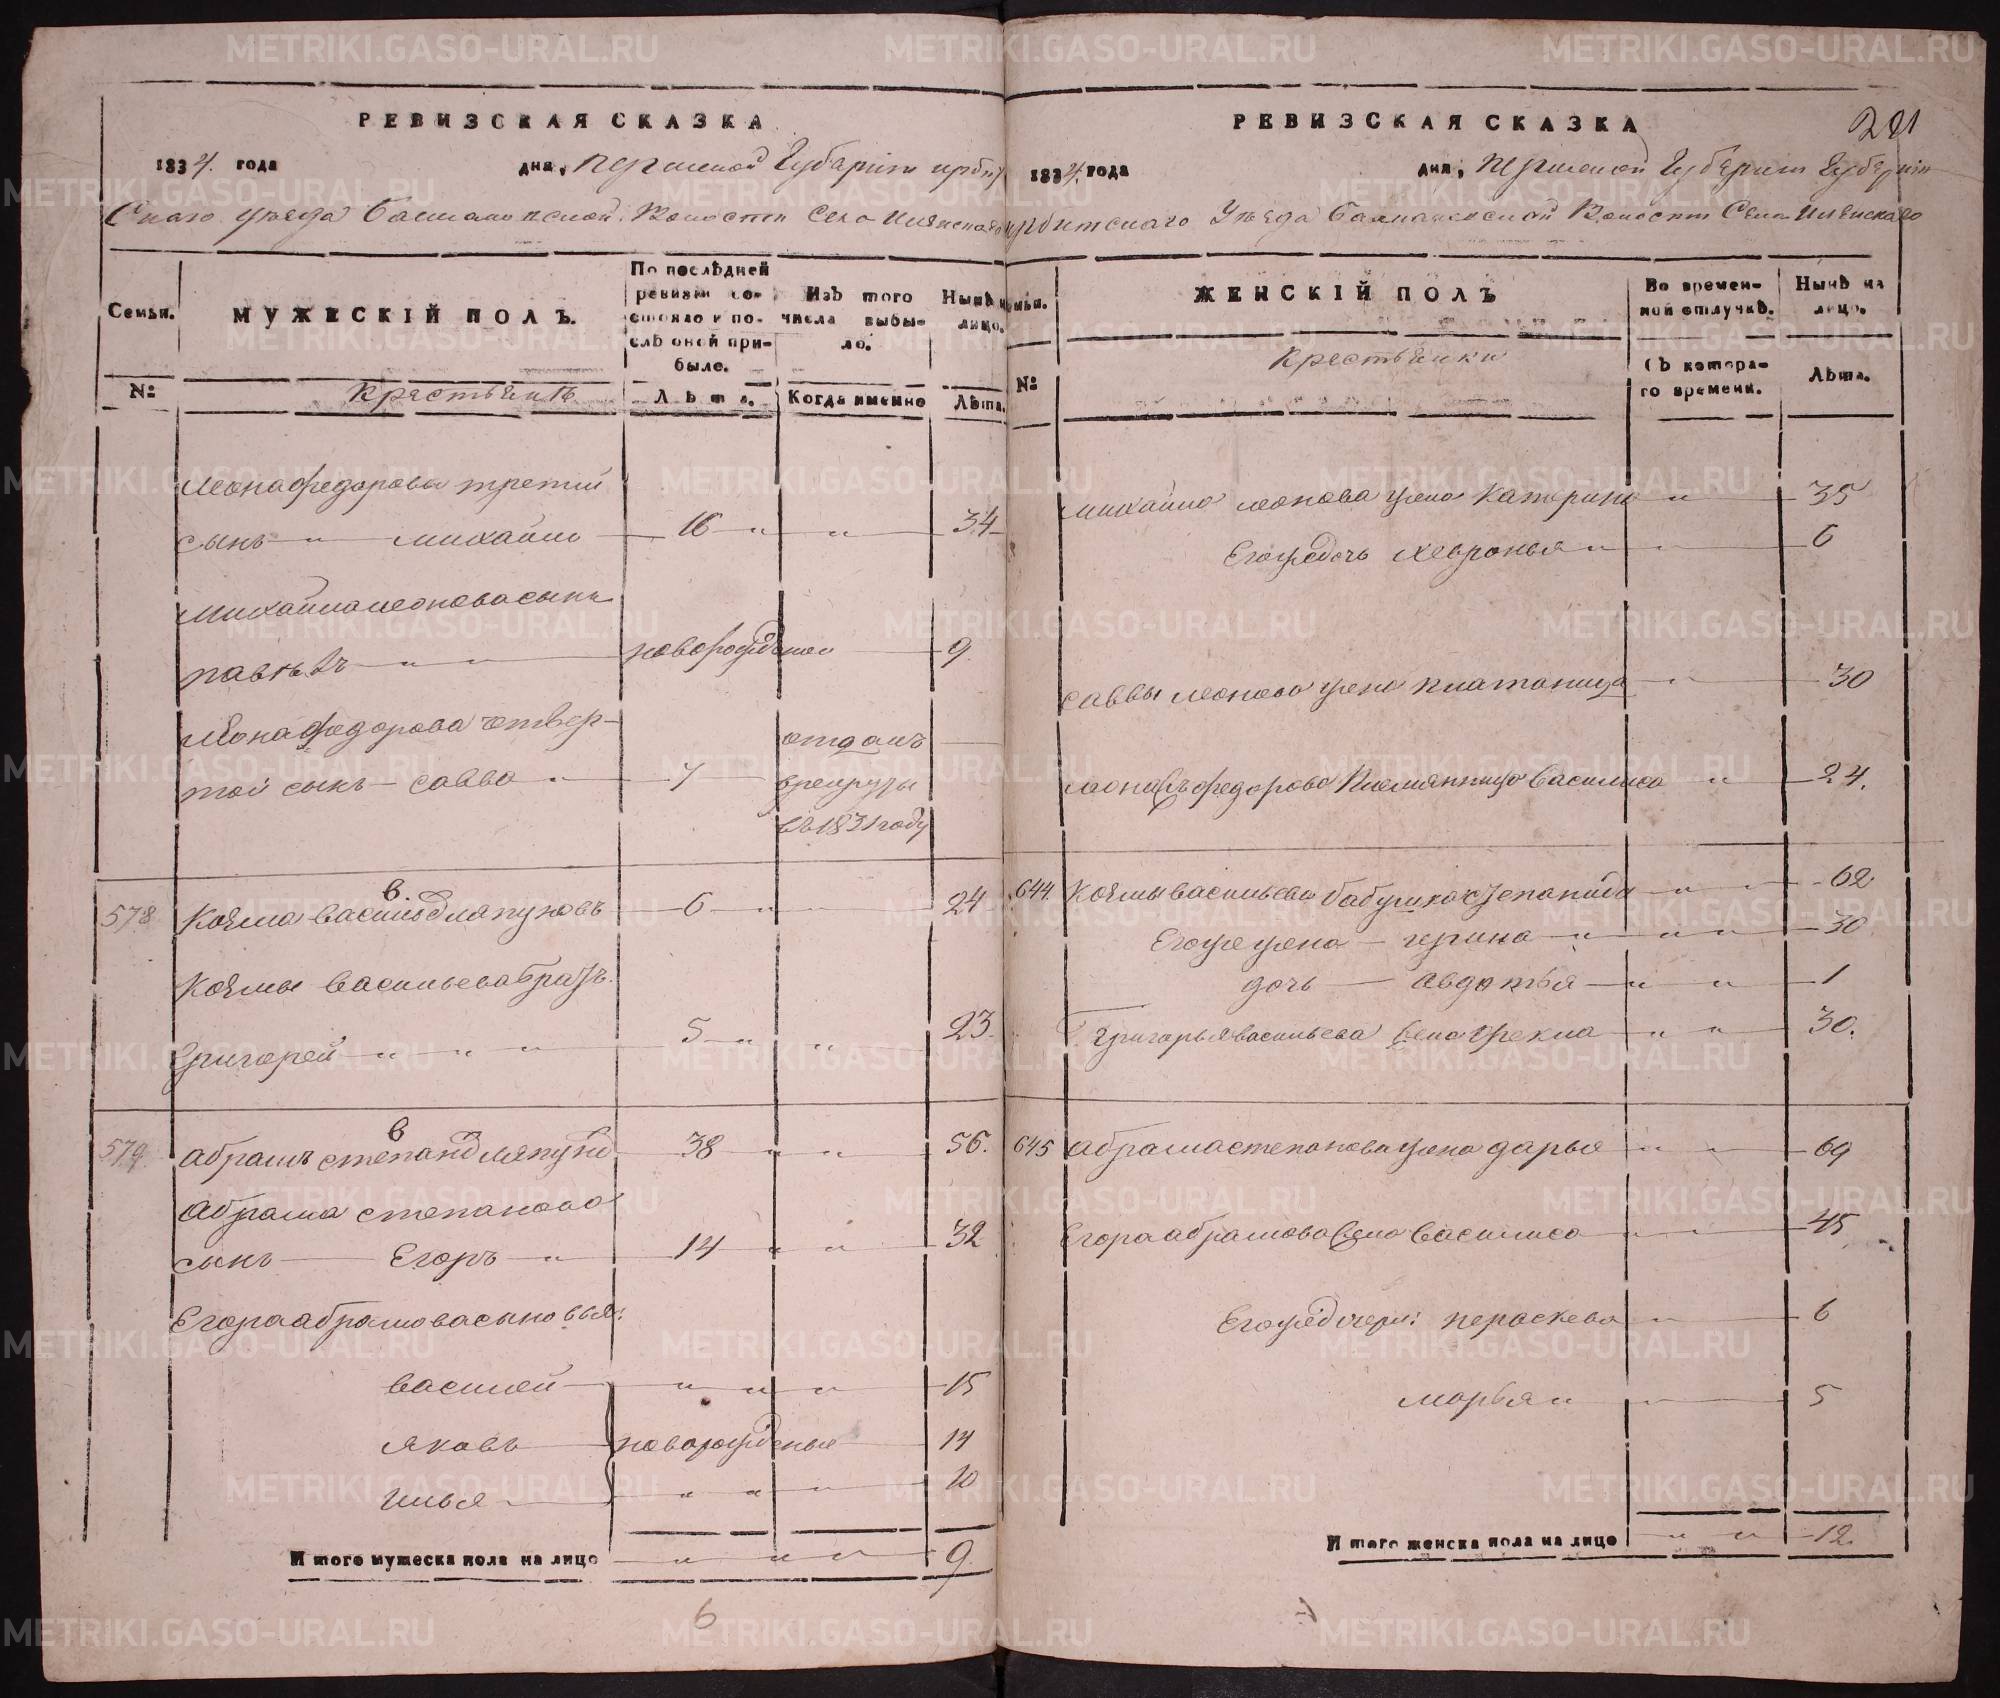 РЕВИЗСКАЯ СКАЗКА
1834. года дня, пермской Губернiи ирбит
Скаго уъезда Балмаковской Волости Села Илинскаго
Семьи.
МУЖЕСКІЙ ПОЛЪ.
По послѣдней ревизіи состояло и послѣ оной прибыло.
Изъ того числа выбыло.
Нынѣ на лицо.
№
Крестьянъ
Лѣта.
Когда именно
Лѣта.
Леона федорова третий
сынъ " михайло 16 " " 34
михайла леонова сынъ
новорожденой 9.
Леона федорова четвер-
той сынъ савва " 7 отданъ
врекруты
въ 1831 году
578 Козма василь в. ляпуновъ 6 " 24
Козмы васильева братъ.
григорей " " " 5 " " 23.
579. абрамъ степан в ляпун 38 " " 56.
абрама степанова
сынъ Егоръ " 14 " " 32
Егора абрамова сыновья:
василей " " " 15
яковъ новорожденыя 14
илья " " " 10
Итого мужеска пола на лицо " " " 9.
6
РЕВИЗСКАЯ СКАЗКА
1834. года дня, пермской Губернiи Губернiи
ирбитскаго Уъезда Волости Села Илинскаго
Семьи.
ЖЕНСКІЙ ПОЛЪ
Во временной отлучкѣ.
Нынѣ на лицо.
№
Крестьянки
Съ котораго времени.
Лѣта.
михайло леонова жена катерина " 35
Егожедочь хевронья " " 6
саввы леонова жена платонида " 30
федорова племянница василиса " 24.
644. Козмы васильева бабушка степанида " " 62
Егоже жена ирина " " " 30
дочь авдотья " " 1
Григорья васильева жена фекла " " 30.
645 абрама степанова жена дарья " " 69
Егора абрамова жена василиса " " 45
Егожедочери: пераскева " 6
марья " " 5
Итого женска пола на лицо " " 12.
METRIKI.GASO-URAL.RU